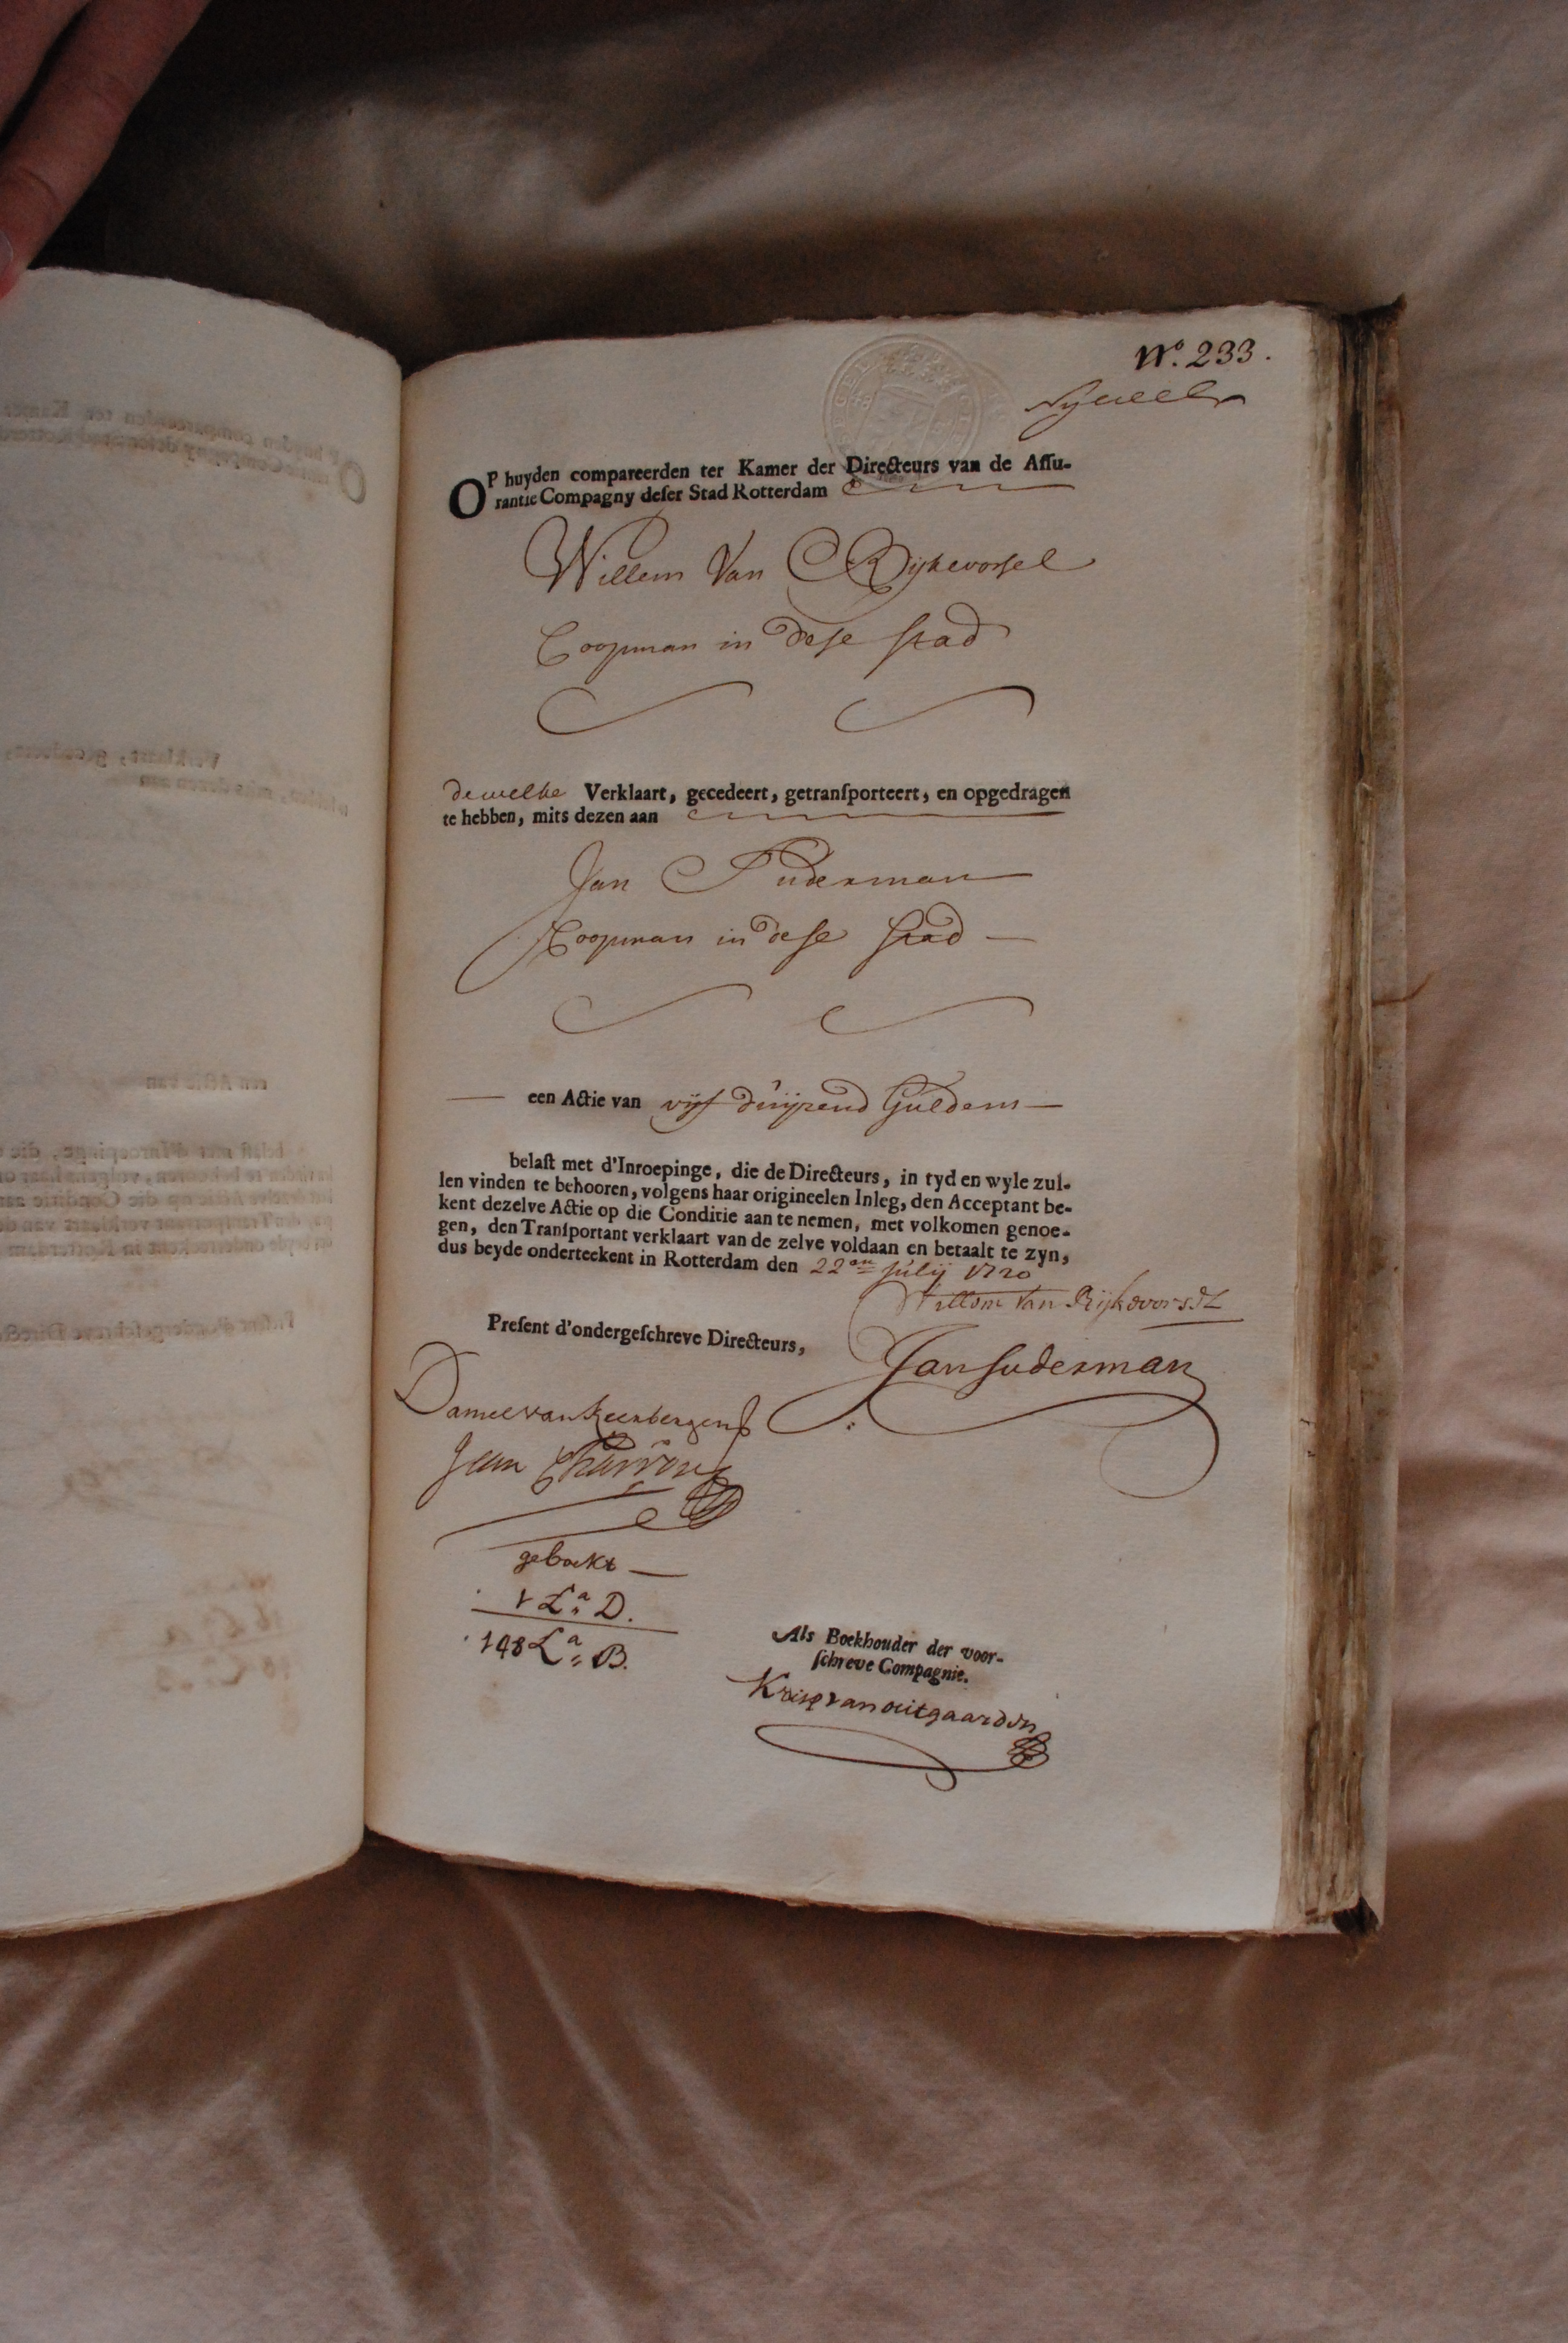 No. 233.
OP huyden compareerden ter Kamer der Directeurs van de Assu-
rantie Compagny deser Stad Rotterdam
Willem Van Rijkevorsel
Coopman in dese stad
dewelke Verklaart, gecedeert, getransporteert, en opgedragen
te hebben, mits dezen aan
Jan Suderman
Coopman in dese stad
een Actie van vijf duijzend Guldens
belast met d'Inroepinge, die de Directeurs, in tyd en wyle zul-
len vinden te behooren, volgens haar origineelen Inleg, den Acceptant be-
kent dezelve Actie op die Conditie aan te nemen, met volkomen genoe-
gen, den Transportant verklaart van de zelve voldaan en betaalt te zyn,
dus beyde onderteekent in Rotterdam den 22en julij 1720
Willem Van Rijkevorsel
Present d'ondergeschreve Directeurs,
Jan Suderman
Daniel van Keerbergen
Jean
geboekt
1 La D.
148 La B.
Als Boekhouder der voor-
schreve Compagnie.
Krisp van outgaarden